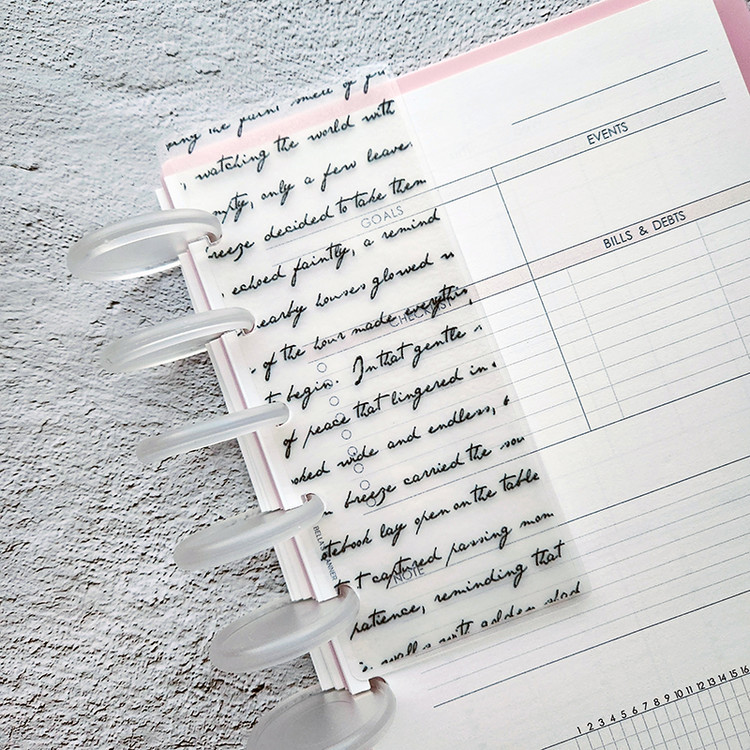 smell of
watching the world with
only a few leaves
breeze decided to take them
echoed faintly, a remind
nearby houses glowed
of the hour made everythin
t begin. In that gentle
of peace that lingered in
ooked wide and endless,
breeze carried the sou
notebook lay open on the table
t captured passing mom
patience, reminding that
walls with golden
GOALS
CHECKLIST
NOTE
BELLA'S PLANNER
EVENTS
BILLS & DEBTS
1 2 3 4 5 6 7 8 9 10 11 12 13 14 15 16